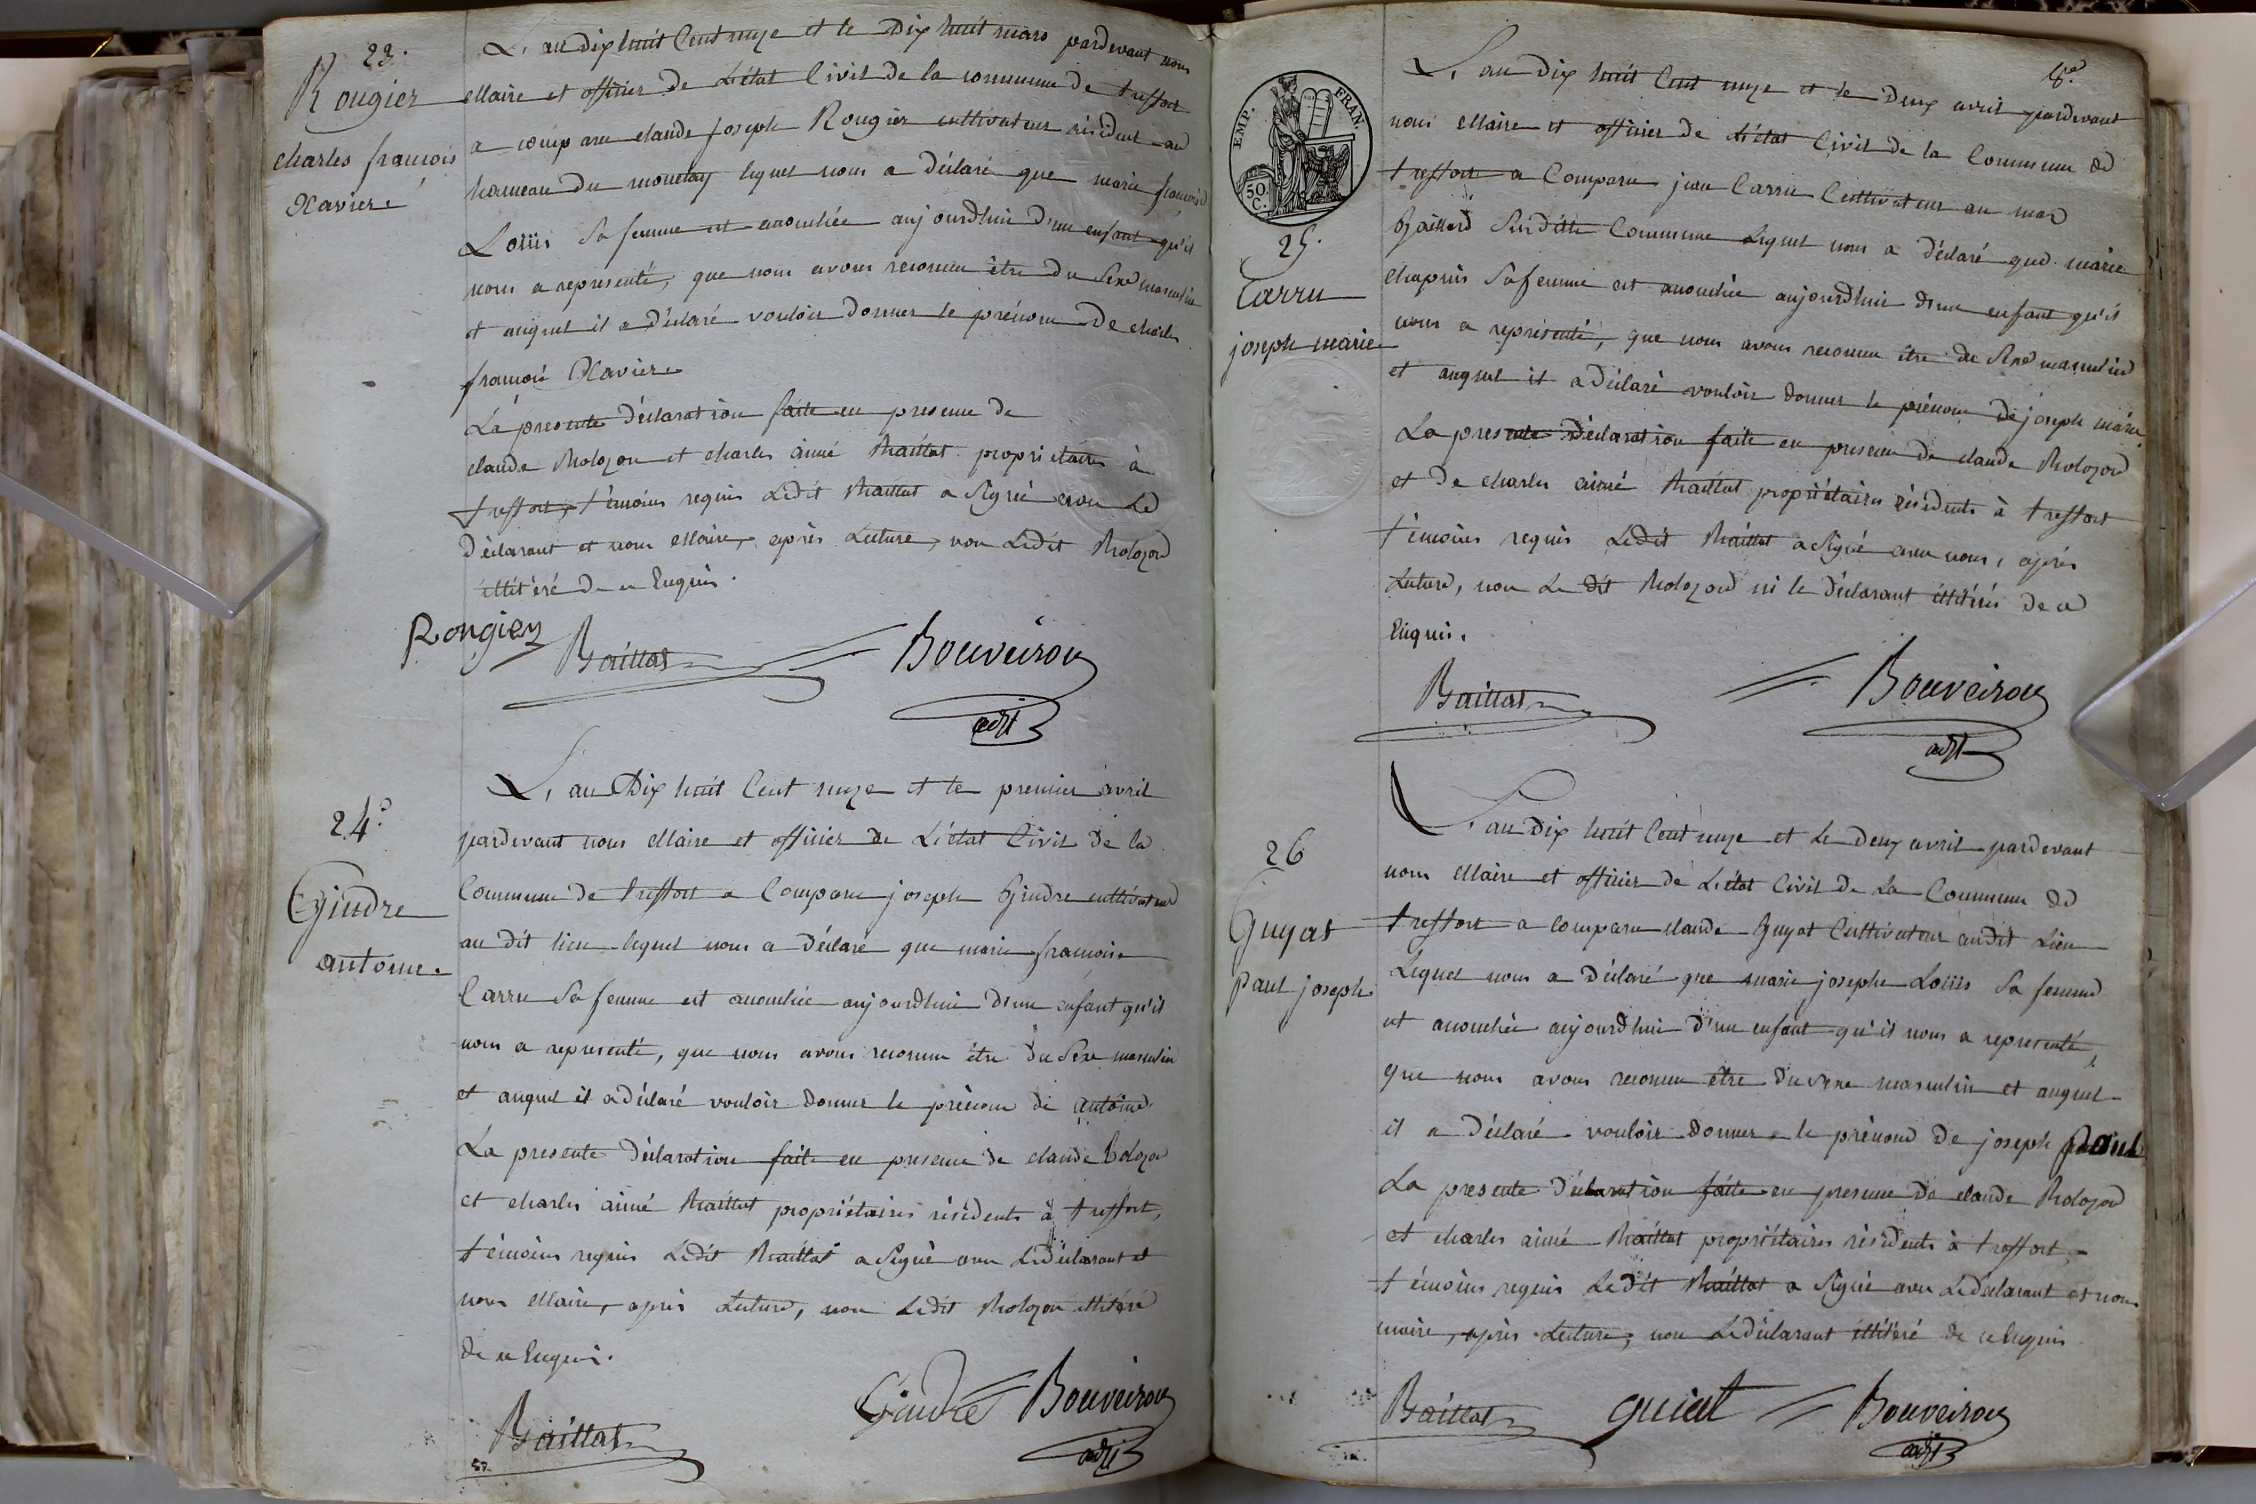 23.
Rougier
charles françois
Xavier
L'an dix huit Cent onze et le Dix huit mars pardevant nous
Maire et officier de L'état Civil de la commune de treffort
a comparu claude joseph Rougier cultivateur résident au
hameau du montay lequel nous a Déclaré que marie françoise
Loüis Sa femme est accouchée aujourdhui D'une enfant qu'il
nous a representé, que nous avons reconnu être Du Sexe masculin
et auquel il a Déclaré vouloir Donner le prénom De charles
françois Xavier
La presente Déclaration faite en presence de
claude Bolozon et charles aimé Baillat propriétaires à
treffort, témoins requis Ledit Baillat a Signé avec Le
Déclarant et nous Maire, après Lecture, non Ledit Bolozon
illitéré De ce Enquis.
Rougier Baillat Bouveiron
adjt
24.
Gindre
antoine.
L'an Dix huit Cent onze et le premier avril
pardevant nous Maire et officier de L'état Civil de la
Commune de treffort a Comparu joseph Gindre cultivateur
au dit lieu lequel nous a Déclaré que marie françoise
Carru Sa femme est accouchée aujourdhui D'une enfant qu'il
nous a representé, que nous avons reconnu être Du Sexe masculin
et auquel il a déclaré vouloir Donner le prénom de antoine
La presente Déclaration faite en presence de claude Bolozon
et charles aimé Baillat propriétaires résidents à treffort,
témoins requis Ledit Baillat a Signé avec Ledéclarant et
nous Maire, après Lecture, non Ledit Bolozon illitéré
De ce Enquis.
Baillat Gindre Bouveiron
adjt
8e
EMP. FRAN.
50.
C.
25.
Carru
joseph marie
L'an dix huit Cent onze et le Deux avril pardevant
nous Maire et officier de L'état Civil de la Commune de
treffort a Comparu jean Carru Cultivateur au mas
Gaillard Susditte Commune Lequel nous a Déclaré que marie
Chapuis Sa femme est accouchée aujourdhui d'une enfant qu'il
nous a représenté, que nous avons reconnu être du Sexe masculin
et auquel il a déclaré vouloir donner le prénom de joseph marie
La presente Déclaration faite en presence de claude Bolozon
et De charles aimé Baillat propriétaires résidents à treffort
témoins requis Ledit Baillat a Signé avec nous, après
Lecture, non Le dit Bolozon ni le Déclarant illitérés de ce
Enquis.
Baillat Bouveiron
adjt
26
Guyat
paul joseph
L'an dix huit Cent onze et Le deux avril pardevant
nous Maire et officier de L'état Civil De La Commune De
treffort a comparu claude Guyat Cultivateur audit Lieu
Lequel nous a Déclaré que marie josephe Loüis Sa femme
est accouchée aujourdhui D'une enfant qu'il nous a representé,
que nous avons reconnu être du Sexe masculin et auquel
il a Déclaré vouloir Donner le prénom De joseph paul
La presente Déclaration faite en presence De claude Bolozon
et charles aimé Baillat propriétaires résidents à treffort
témoins requis Ledit Baillat a Signé avec Ledéclarant et nous
maire, après Lecture, non Ledéclarant illitéré De ce Enquis
Baillat guiat Bouveiron
adjt